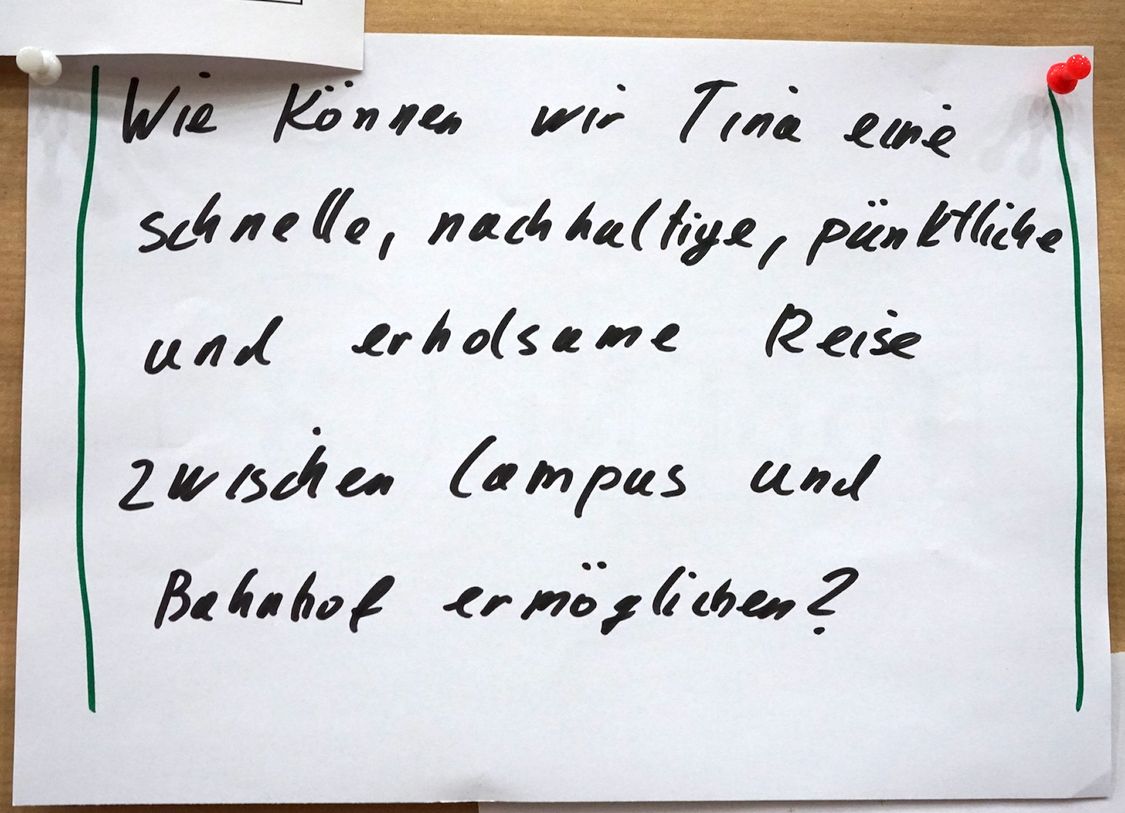 Wie können wir Tina eine
schnelle, nachhaltige, pünktliche
und erholsame Reise
zwischen Campus und
Bahnhof ermöglichen?